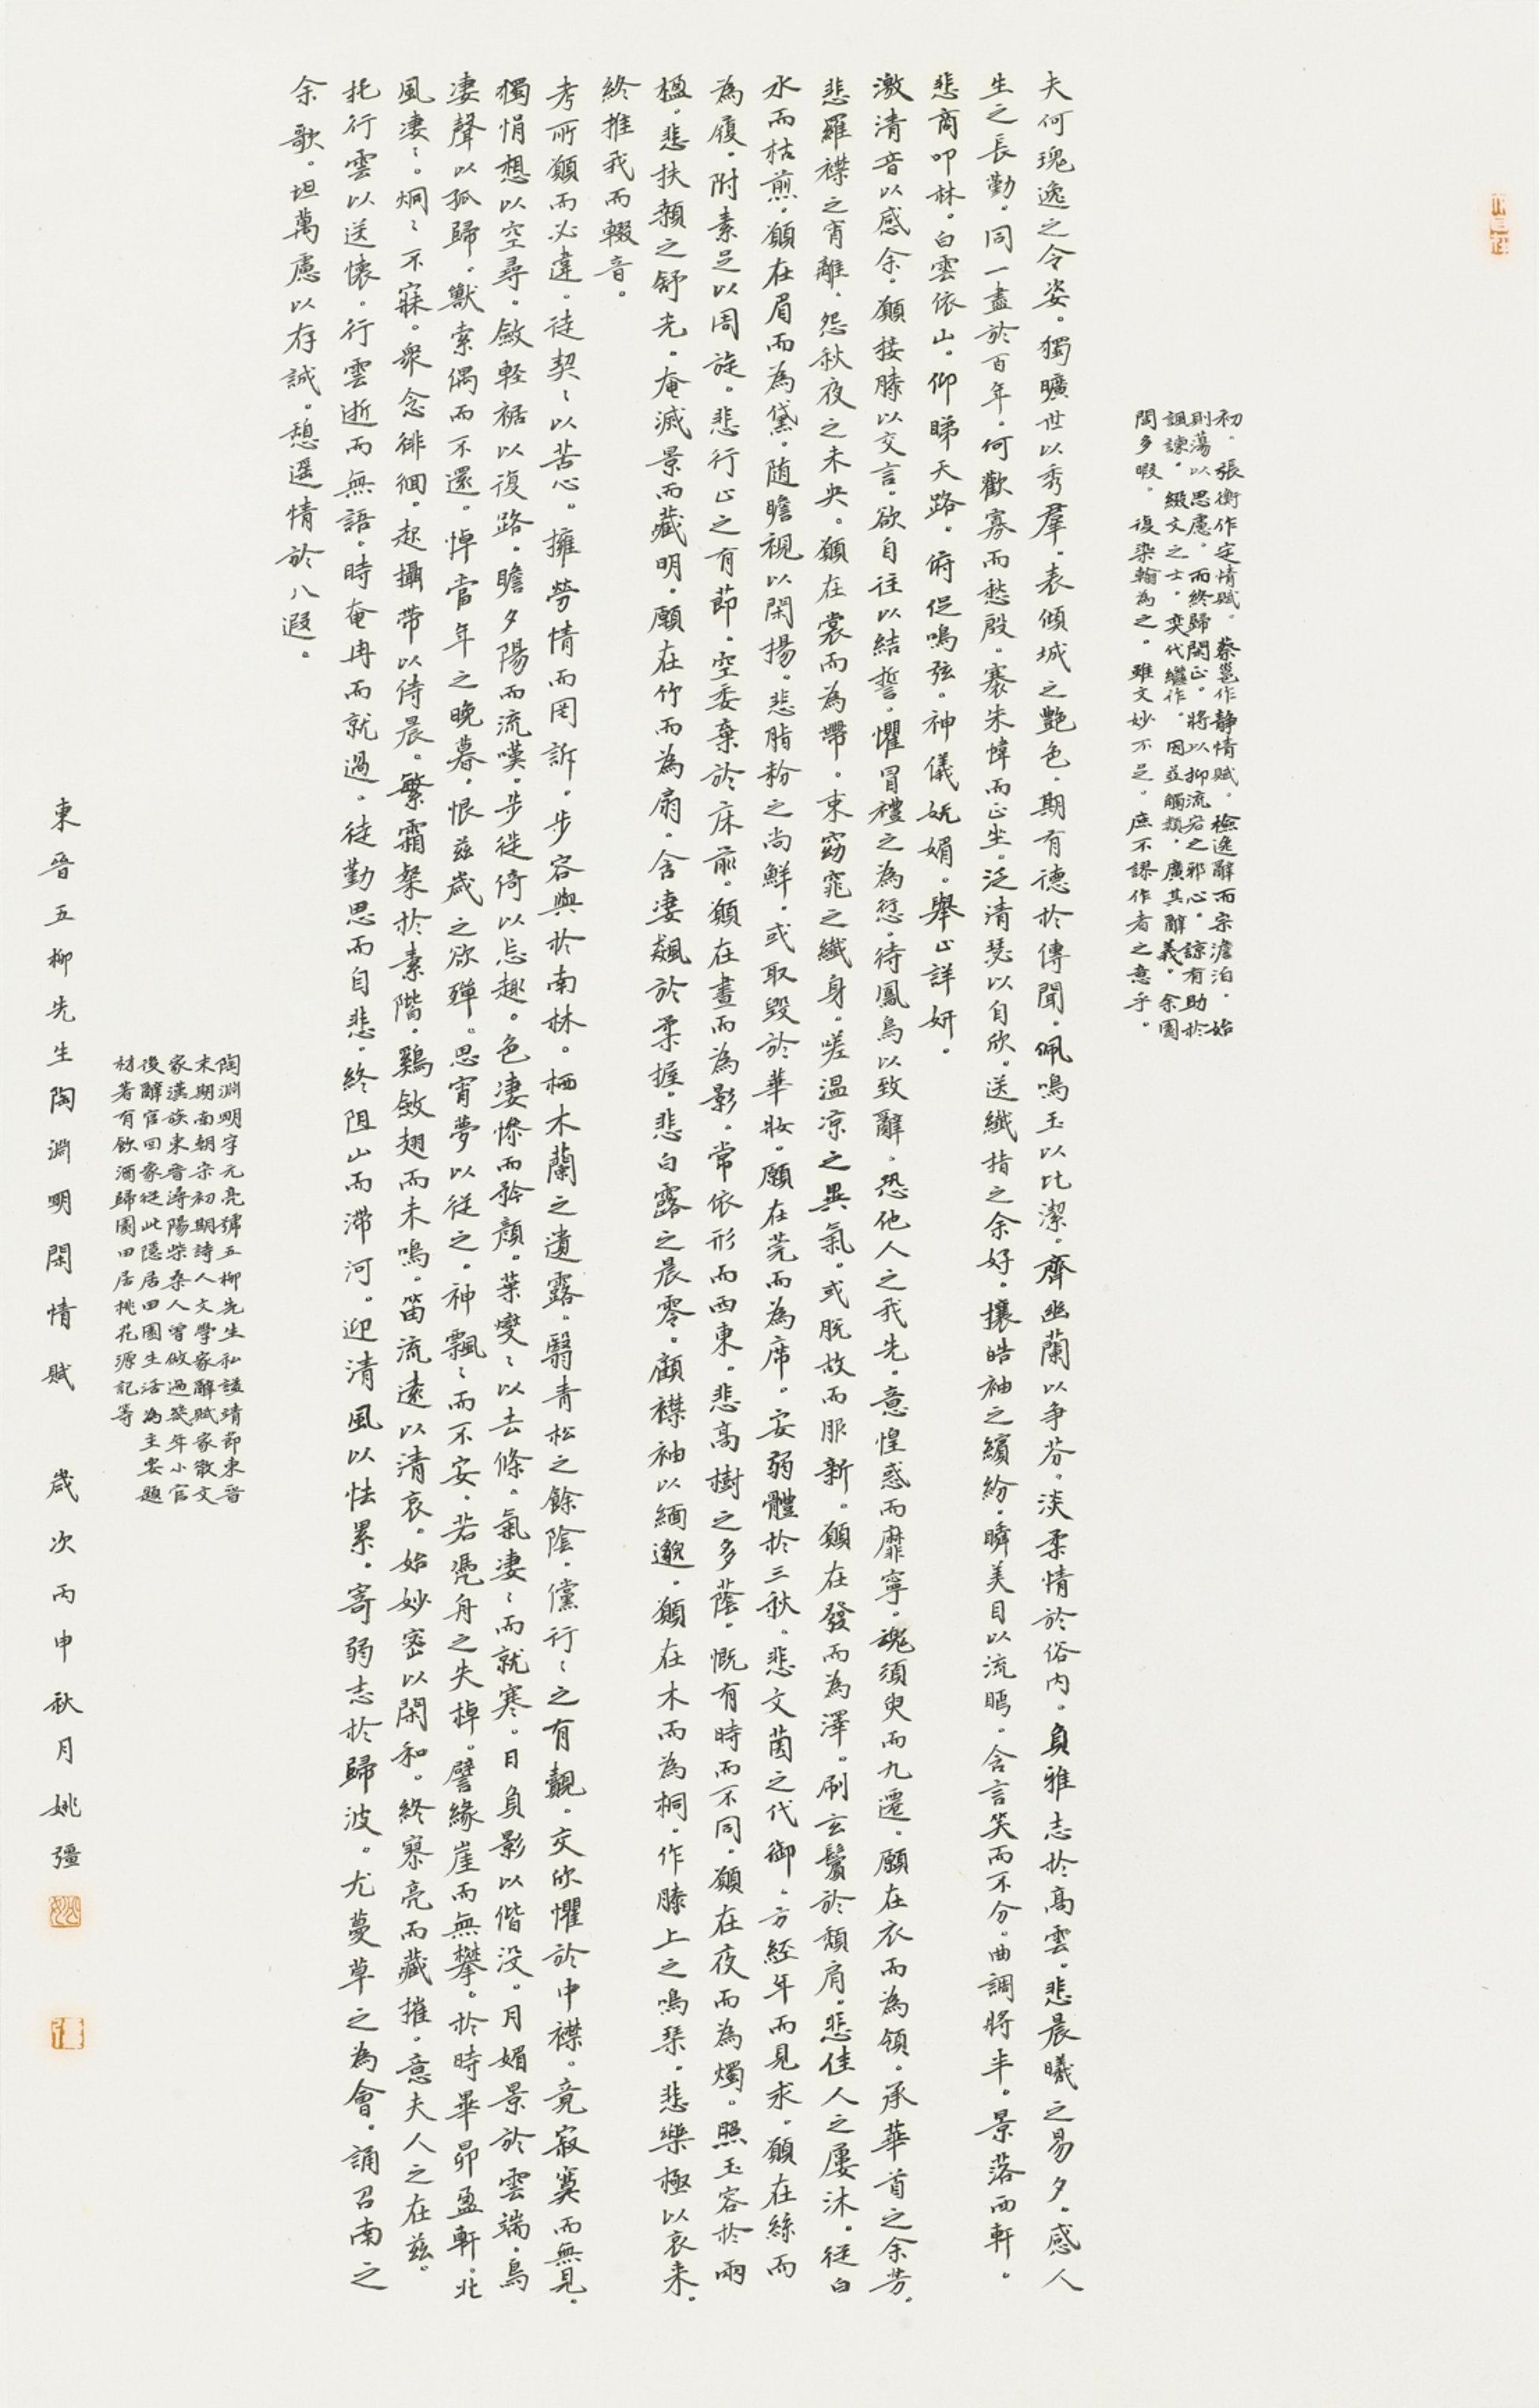 初。張衡作定情賦。蔡邕作静情賦。檢逸辭而宗澹泊。始
則蕩以思慮。而終歸閑正。將以抑流宕之邪心。諒有助於
諷諫。綴文之士。奕代繼作。因並觸類。廣其辭義。余園
閭多暇。復染翰為之。雖文妙不足。庶不謬作者之意乎。
夫何瑰逸之令姿。獨曠世以秀羣。表傾城之艷色。期有德於傳聞。佩鳴玉以比潔。齊幽蘭以争芬。淡柔情於俗内。負雅志於高雲。悲晨曦之易夕。感人
生之長勤。同一盡於百年。何歡寡而愁殷。褰朱幃而正坐。泛清瑟以自欣。送纖指之余好。攘皓袖之繽紛。瞬美目以流眄。含言笑而不分。曲調將半。景落西軒。
悲商叩林。白雲依山。仰睇天路。俯促鳴弦。神儀妩媚。舉止詳妍。
激清音以感余。願接膝以交言。欲自往以結誓。懼冒禮之為愆。待鳳鳥以致辭。恐他人之我先。意惶惑而靡寧。魂須臾而九遷。願在衣而為領。承華首之余芳。
悲羅襟之宵離。怨秋夜之未央。願在裳而為帶。束窈窕之纖身。嗟温凉之異氣。或脱故而服新。願在發而為澤。刷玄鬢於頹肩。悲佳人之屢沐。從白
水而枯煎。願在眉而為黛。随瞻視以閑揚。悲脂粉之尚鮮。或取毁於華妝。願在莞而為席。安弱體於三秋。悲文茵之代御。方經年而見求。願在絲而
為履。附素足以周旋。悲行止之有節。空委棄於床前。願在晝而為影。常依形而西東。悲高樹之多蔭。慨有時而不同。願在夜而為燭。照玉容於兩
楹。悲扶桑之舒光。奄滅景而藏明。願在竹而為扇。含凄飆於柔握。悲白露之晨零。顧襟袖以緬邈。願在木而為桐。作膝上之鳴琴。悲樂極以哀来。
終推我而輟音。
考所願而必違。徒契〻以苦心。擁勞情而罔訴。步容與於南林。栖木蘭之遺露。翳青松之餘陰。儻行〻之有覿。交欣懼於中襟。竟寂寞而無見。
獨悁想以空尋。斂軽裾以復路。瞻夕陽而流嘆。步徙倚以忘趣。色凄慘而矜顔。葉燮〻以去條。氣凄〻而就寒。日負影以偕没。月媚景於雲端。鳥
凄聲以孤歸。獸索偶而不還。悼當年之晚暮。恨兹歲之欲殫。思宵夢以從之。神飄〻而不安。若憑舟之失棹。譬緣崖而無攀。於時畢昴盈軒。北
風凄〻。炯〻不寐。衆念徘徊。起攝帶以侍晨。繁霜粲於素階。鷄斂翅而未鳴。笛流遠以清哀。始妙密以閑和。終寥亮而藏摧。意夫人之在兹。
托行雲以送懷。行雲逝而無語。時奄冉而就過。徒勤思而自悲。終阻山而滯河。迎清風以怯累。寄弱志於歸波。尤蔓草之為會。誦召南之
余歌。坦萬慮以存誠。憩遥情於八遐。
陶淵明字元亮號五柳先生私諡靖節東晋
末期南朝宋初期詩人文學家辭賦家散文
家漢族東晋潯陽柴桑人曾做過幾年小官
後辭官回家從此隱居田園生活為主要題
材著有飲酒歸園田居桃花源記等
東晋五柳先生陶淵明閑情賦 歲次丙申秋月姚彊